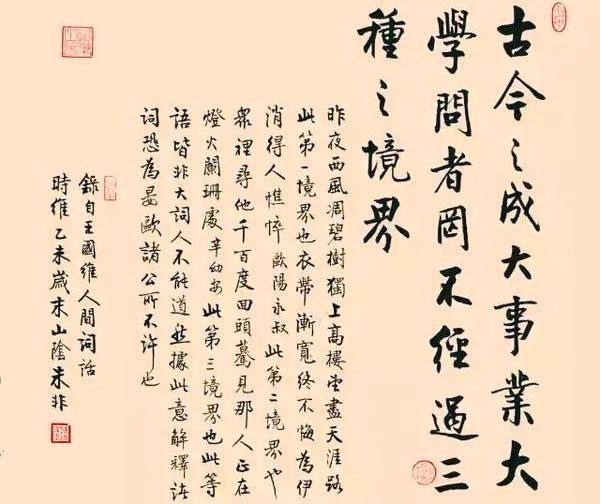 古今之成大事業大
學問者罔不經過三
種之境界
昨夜西風凋碧樹獨上高樓望盡天涯路
此第一境界也衣帶漸寬終不悔為伊
消得人憔悴歐陽永叔此第二境界也
衆裡尋他千百度回頭驀見那人正在
燈火闌珊處辛幼安此第三境界也此等
語皆非大詞人不能道然據此意解釋諸
詞恐為晏歐諸公所不許也
錄自王國維人間詞話
時維乙未歲末山陰未非